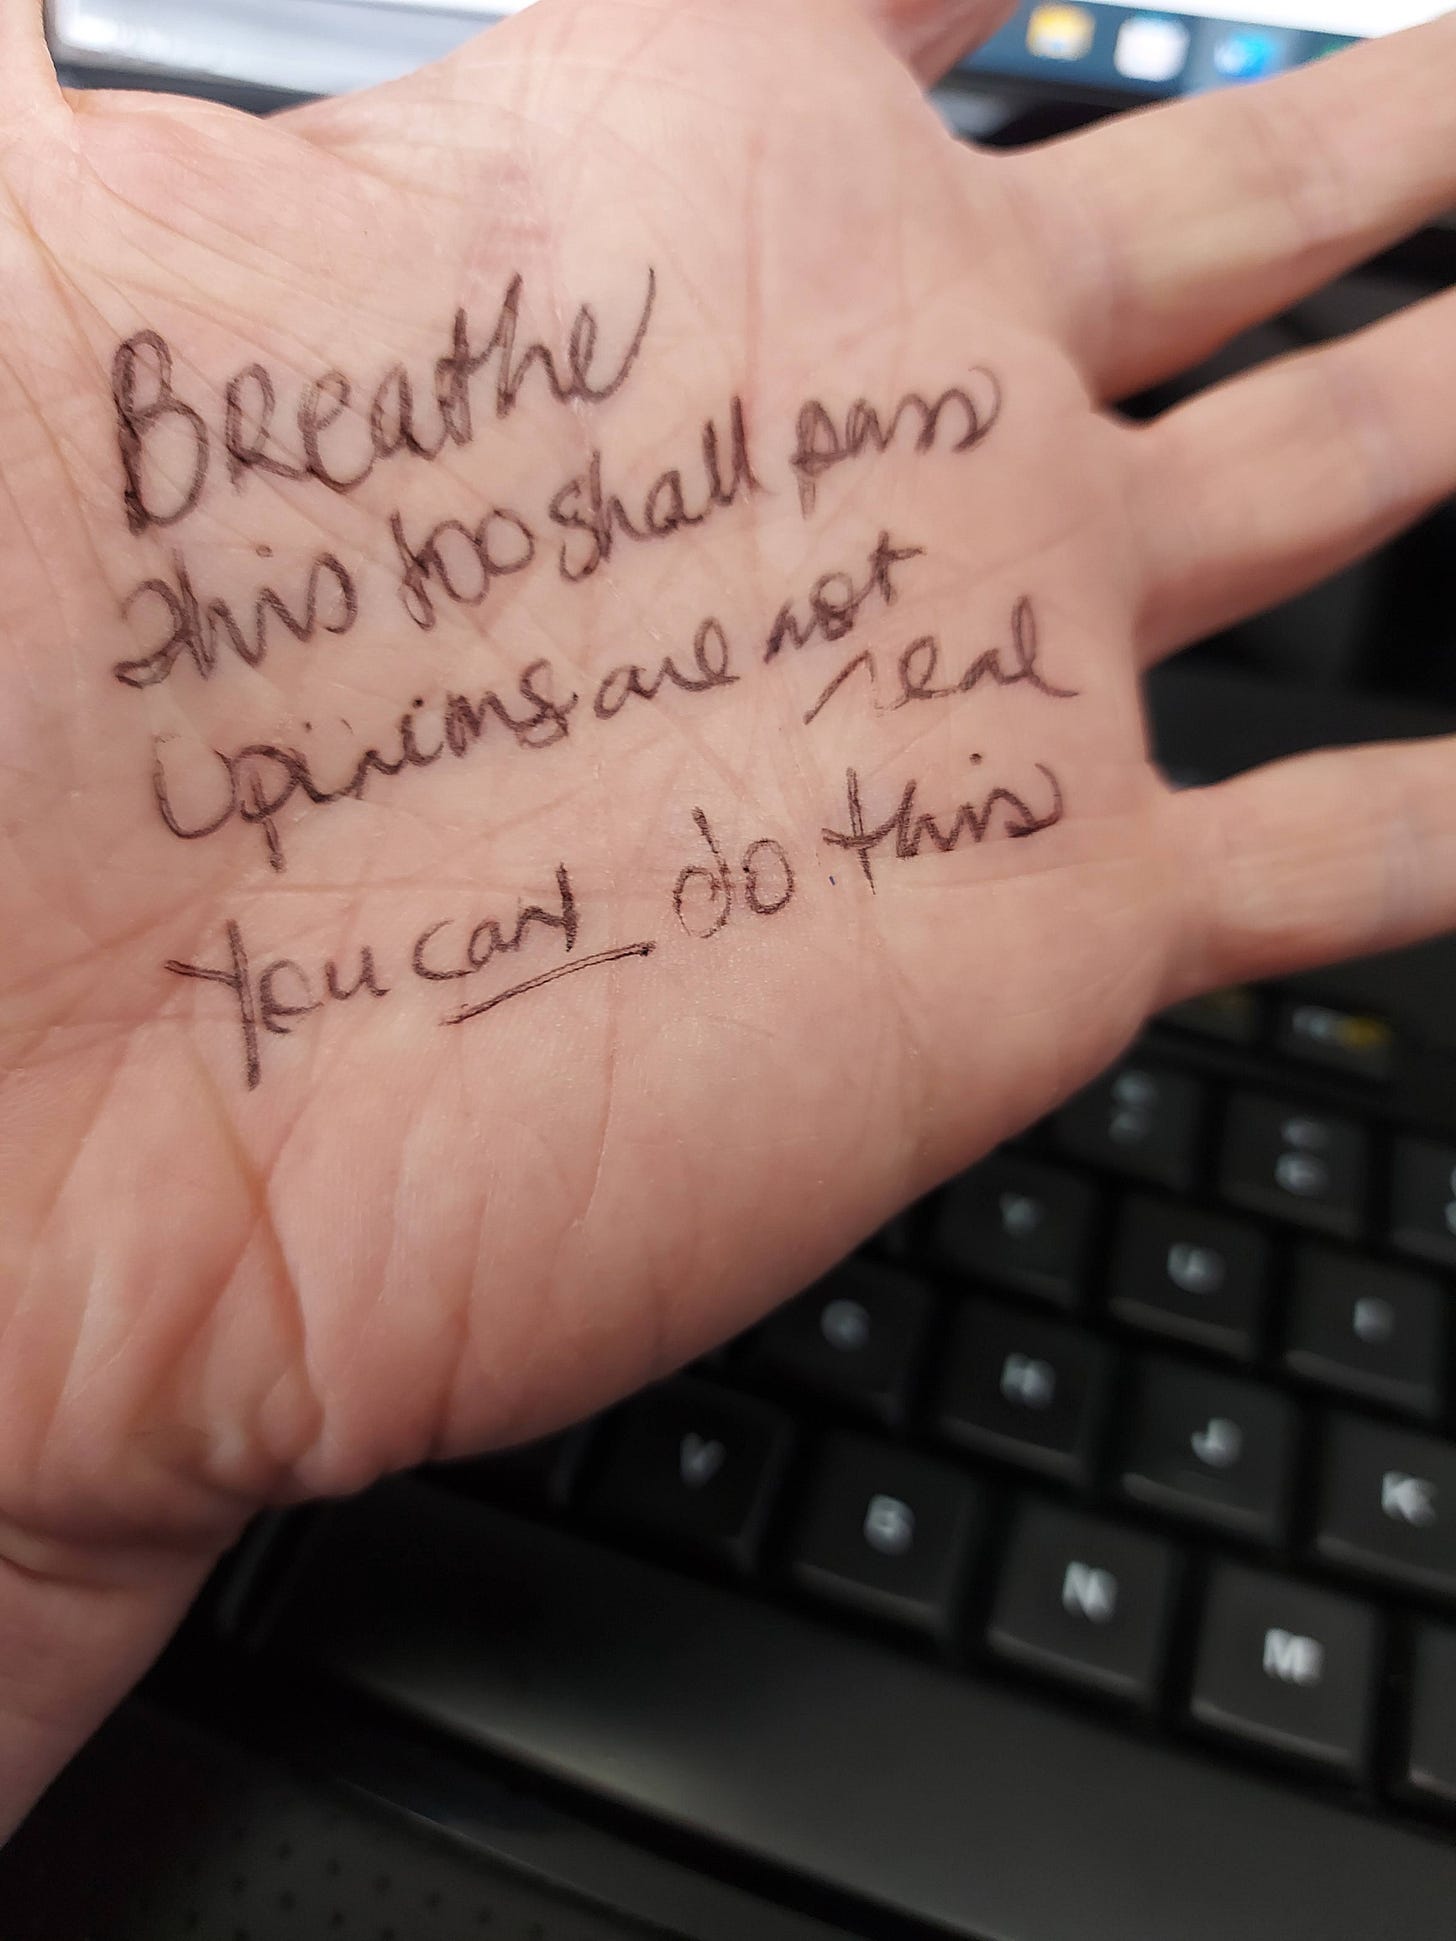 Breathe
this too shall pass
Opinions are not
real
You can do this
V
B
N
M
H
J
K